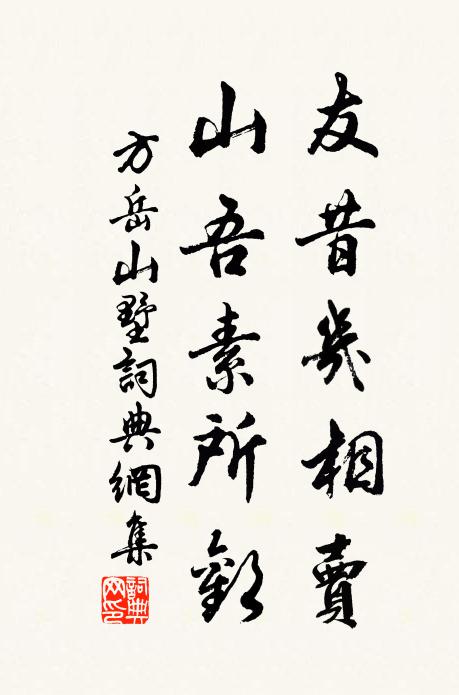 友昔幾相賣
山吾素所歡
方岳山墅詞典網集
詞典
网印